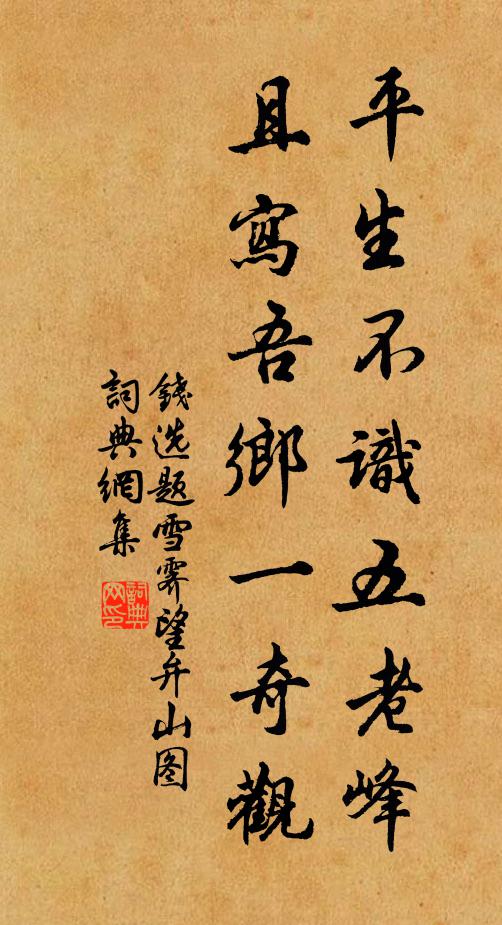 平生不識五老峰
且寫吾鄉一奇觀
錢选题雪霁望弁山图
詞典網集
詞典网印